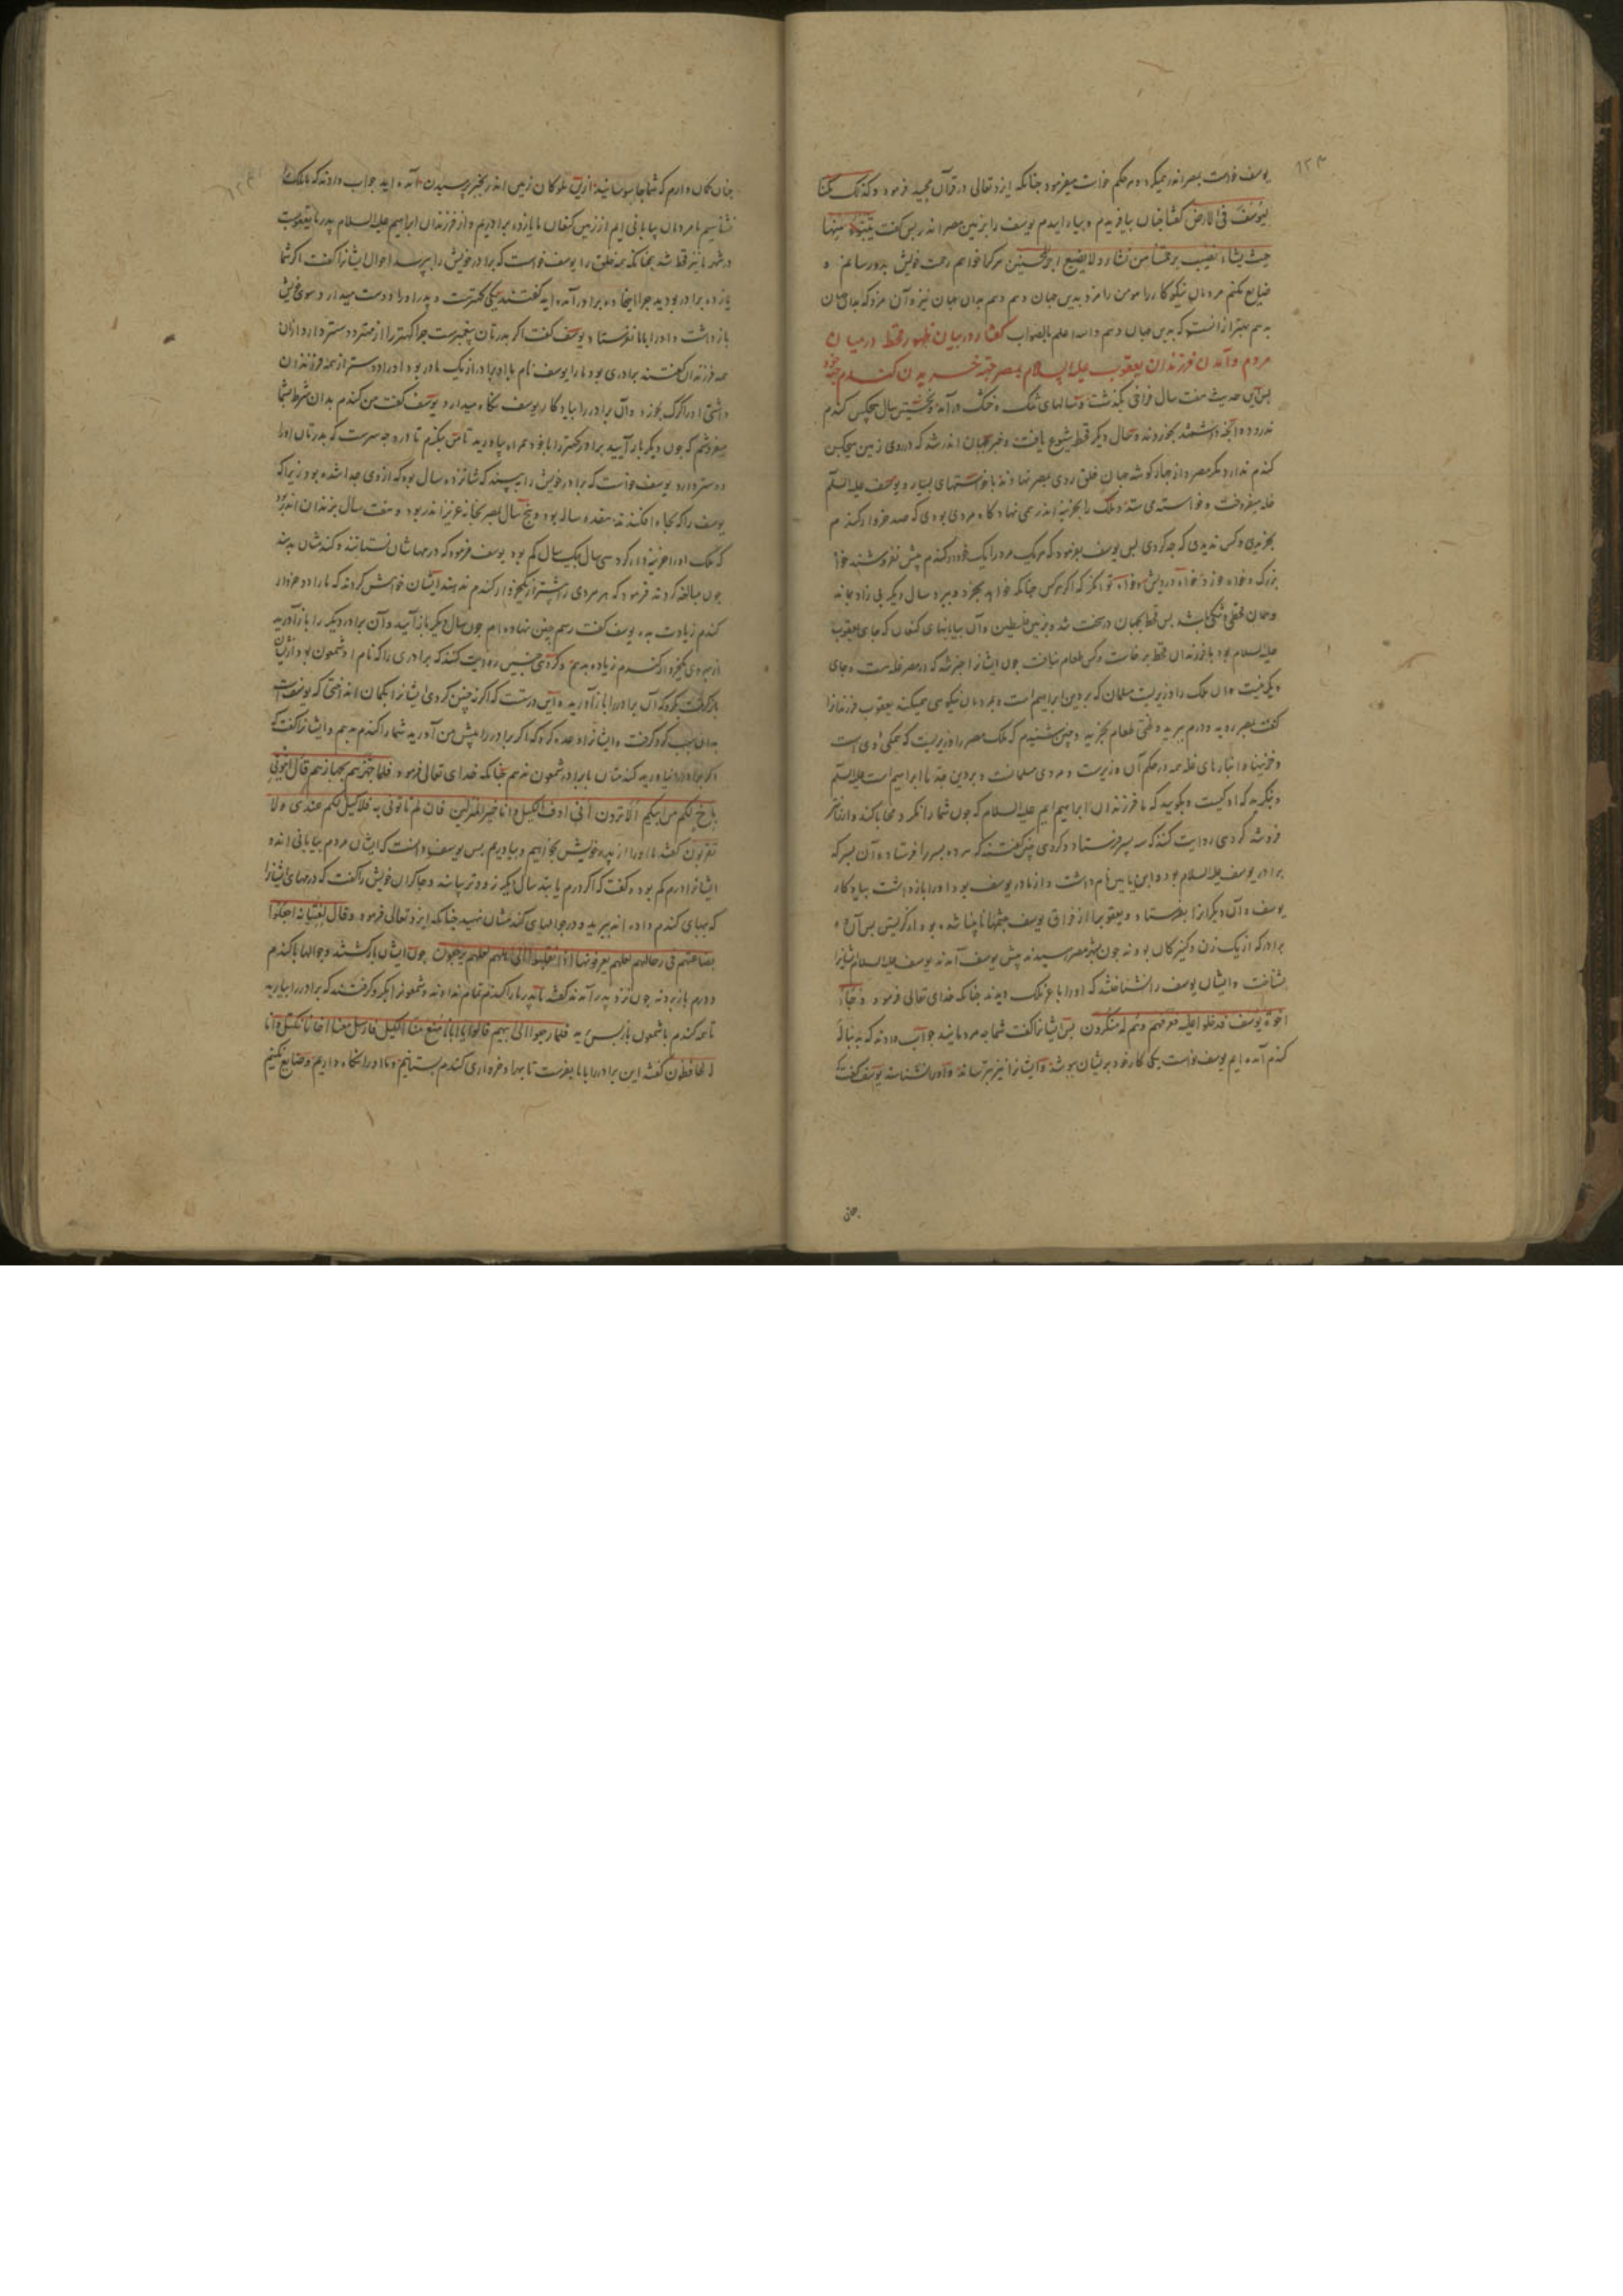 یوسف خاست بمصر اندر میکرد و هر حکم خواست میفرمود چنانکه ایزد تعالی در قرآن مجید فرمود و کذلک مکنا
لیوسف فی الارض گفتا چنان بیافریدم و بیارامیدم یوسف را بزمین مصر اندر پس گفت یتبوء منها
حیث یشاء نصیب برحمتنا من نشاء و لا نضیع اجر المحسنین هر کرا خواهم رحمت خویش بدو رسانم و
ضایع نکنم مردمان نیکوکار را مومن را مزد بدین جهان دهم و هم بدان جهان نیز و آن مزد که بدان جهان
بدهم بهتر از آنست که بدین جهان دهم والله اعلم بالصواب گفتار در بیان ظهور قحط در میان
مردم و آمدن فرزندان یعقوب علیه السلام بمصر جهة خریدن گندم
پس این حدیث هفت سال فراخی بگذشت و سالهای تنگ و خشک درآمد و نخستین سال هیچکس گندم
ندرود و آنچه داشتند بخوردند و سال دیگر قحط شیوع یافت و خبر بجهان اندر شد که در روی زمین هیچکس
گندم ندارد مگر مصر و از چهار گوشه جهان خلق روی بمصر نهادند با خواستهای بسیار و یوسف علیه السلام
غله میفروخت و خواسته می ستد و ملک را بخزینه اندر همی نهاد گاه مردی بودی که صد خروار گندم
بخریدی و کس ندیدی که چه کردی پس یوسف بفرمود که هر یک مرد را یک خروار گندم بیش نفروشند خواه
بزرگ و خواه خرد و خواه درویش و خواه توانگر که اگر هر کس چنانکه خواهد بخرد و ببرد سال دیگر بی زاد بمانند
و جهان قحطی و تنگی باشد پس قحط بجهان در سخت شد و بزمین فلسطین و آن بیابانهای کنعان که جای یعقوب
علیه السلام بود با فرزندان قحط برخاست و کس طعام نیافت چون ایشان را خبر شد که در مصر غله است و جای
دیگر نیست و آن ملک را وزیریست مسلمان که بر دین ابراهیم است و بمردمان نیکویی همیکند یعقوب فرزندانرا
گفت بمصر روید و درم ببرید و لختی طعام بخرید و چنین شنیدم که ملک مصر را وزیریست که همگی او وی است
و خزینها و انبارهای غله همه در حکم آن وزیرست و مردی مسلمانست و بر دین جد ما ابراهیم است علیه السلام
و بنگرید که او کیست و بگویید که ما فرزندان ابراهیم ایم علیه السلام که چون شما را نگرد محابا کند و ارزانتر
فروشد گروهی روایت کنند که سه پسر فرستاد و گروهی چنین گفتند که هر ده پسر را فرستاد و آن پسر که
برادر یوسف علیه السلام بود و ابن یامین نام داشت و از مادر یوسف بود او را بازداشت بیادگار
یوسف و آن دیگرانرا بفرستاد و یعقوب را از فراق یوسف چشمها نابینا شده بود از گریستن پس آن ده
برادر که از یک زن و کنیزکان بودند چون بشهر مصر رسیدند پیش یوسف آمدند یوسف علیه السلام ایشانرا
بشناخت و ایشان یوسف را نشناختند که او را با عز ملک دیدند چنانکه خدای تعالی فرمود و جاء
اخوة یوسف فدخلوا علیه فعرفهم و هم له منکرون پس ایشانرا گفت شما چه مردمانید جواب دادند که به بهای
گندم آمده ایم یوسف خواست یکی کار خود بر ایشان بپوشد و ایشانرا نیز بترساند و او را نشناسند یوسف گفت
چنان
چنان گمان دارم که شما جاسوسانید از این ملوکان زمین اندر بخبر پرسیدن آمده اید جواب دادند که ما ملک را
نشناسیم ما مردمان بیابانی ایم از زمین کنعان ما یازده برادریم و از فرزندان ابراهیم علیه السلام پدر ما یعقوبست
در شهر ما نیز قحط شد چنانکه همه خلق را یوسف خواست که برادر خویش را بپرسد احوال ایشانرا گفت اگر شما
یازده برادر بودید چرا اینجا ده برادر آمده اید گفتند یکی کهترست و پدر او را دوست میدارد سوی خویش
بازداشت و او را با ما نفرستاد یوسف گفت اگر پدرتان پیغمبرست چرا کهتر را از مهتر دوستر دارد از آن
همه فرزندان گفتند برادری بود ما را یوسف نام با او برادر از یک مادر بود او را دوستر از همه فرزندان
داشتی او را گرگ بخورد و آن برادر را بیادگار یوسف نگاه میدارد یوسف گفت من گندم بدان شرط شما
میفروشم که چون دیگر بار آیید برادر کهتر را با خود همراه بیاورید تا من بنگرم تا او چه سرست که پدرتان او را
دوستر دارد یوسف خواست که برادر خویش را ببیند که شانزده سال بود که از وی جدا شده بود زیرا که
یوسف را که بچاه افکندند هفده ساله بود و پنج سال بمصر بخانه عزیز اندر بود و هفت سال بزندان اندر بود
که ملک او را خزینه دار کرد سی سال یک سال کم بود یوسف فرمود که درمهاشان نستانند و گندمشان بدهند
چون مبالغه کردند فرمود که هر مردی را بیشتر از یکخروار گندم ندهند ایشان خواهش کردند که ما را دو خروار
گندم زیادت بده یوسف گفت رسم چنین نهاده ام چون سال دیگر بازآیید و آن برادر دیگر را بازآورید
از بهر وی یکخروار گندم زیاده بدهم و گروهی چنین روایت کنند که برادری را که نام او شمعون بود از ایشان
بازگرفت بگرو که آن برادر را بازآورید و این درست که اگر نه چنین کردی ایشانرا بگمان انداختی که یوسفست
بدان سبب گرو گرفت و ایشانرا وعده کرد که اگر برادر را پیش من آورید شما را گندم بدهم و ایشانرا گفت که
اگر برادر را نیاورید گندمتان با برادر شمعون ندهم چنانکه خدای تعالی فرمود فلما جهزهم بجهازهم قال ائتونی
باخ لکم من ابیکم الا ترون انی اوف الکیل و انا خیر المنزلین فان لم تاتونی به فلا کیل لکم عندی و لا
تقربون گفتند ما او را از پدر خویش بخواهیم و بیاوریم پس یوسف دانست که ایشان مردم بیابانی اند و
ایشانرا درم کم بود و گفت که اگر درم یابند سال دیگر زودتر بیایند و چاکران خویش را گفت که درمهای ایشانرا
که ببهای گندم داده اند ببرید و در جوالهای گندمشان نهید چنانکه ایزد تعالی فرمود و قال لفتیانه اجعلوا
بضاعتهم فی رحالهم لعلهم یعرفونها اذا انقلبوا الی اهلهم لعلهم یرجعون چون ایشان بازگشتند و جوالها با گندم
و درم بازبردند چون نزد پدر آمدند گفتند ای پدر ما را گندم تمام ندادند و شمعونرا بگرو گرفتند که برادر را بیارید
تا همه گندم با شمعون بازپس دهید فلما رجعوا الی ابیهم قالوا یا ابانا منع منا الکیل فارسل معنا اخانا نکتل و انا
له لحافظون گفتند این برادر را با ما بفرست تا بهر او خرواری گندم بستانیم و ما او را نگاه داریم و ضایع نکنیم